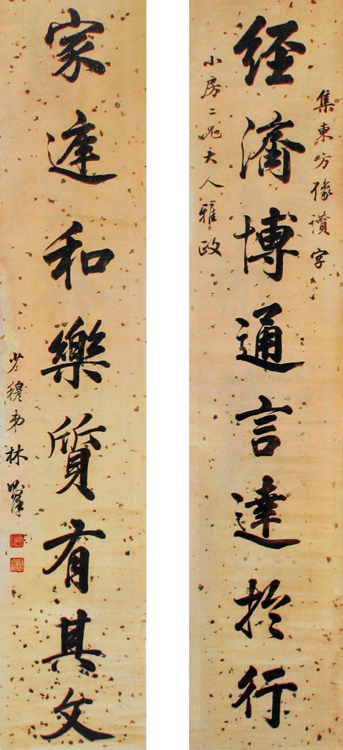 集東方像讚字
經濟博通言達於行
小房二兄大人雅政
家庭和樂質有其文
少穆弟林則徐